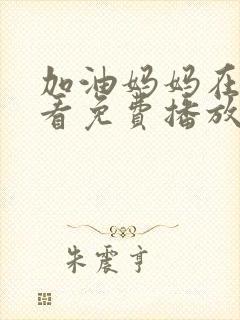 加油妈妈在
看免费播放
朱震亨